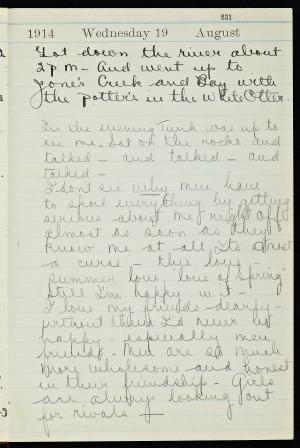 231
1914 Wednesday 19 August
Got down the river about
2 p.m - And went up to
Jone's Creek and Bay with
the potter's in the White Otter.
In the evening Tunk was up to
see me. Sat on the rocks and
talked - and talked - and
talked -
I don't see why men have
to spoil everything by getting
serious about me right off
almost as soon as they
know me at all, Its almost
a curse - this love -
summer love, "love of Spring"
Still I'm happy in it -
I love my friends dearly -
without them I'd never be
happy - especially men
friends - Men are so much
more wholesome and honest
in their friendship - Girls
are always looking out
for rivals